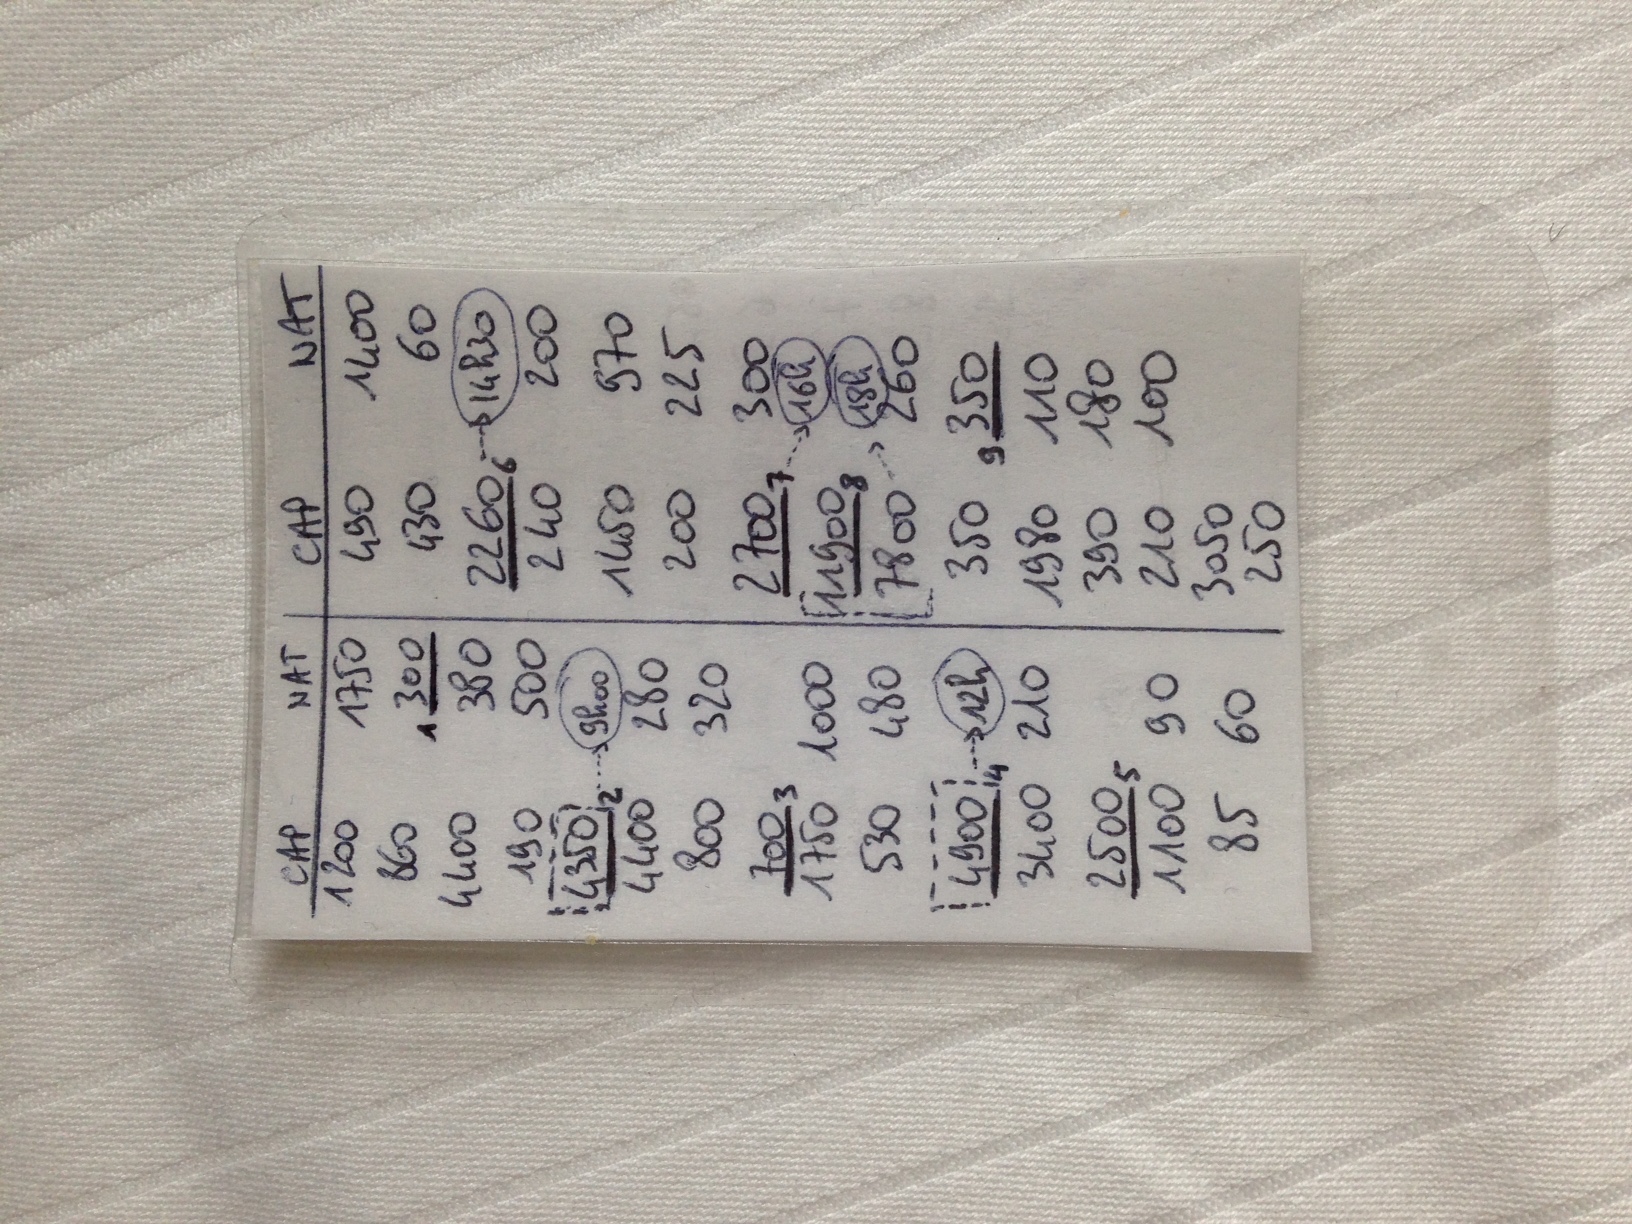 CAP NAT CAP NAT
1200 1750 490 1400
860 1 300 430 60
4400 380 2260 6 14h30
190 500 240 200
4350 2 9h00 1450 970
4400 280 200 225
800 320 2700 7 300
700 3 16h
1750 1000 11900 8 18h
530 480 7800 260
4900 4 12h 350 9 350
3400 210 1980 110
2500 5 390 180
1100 90 210 100
85 60 3050
250